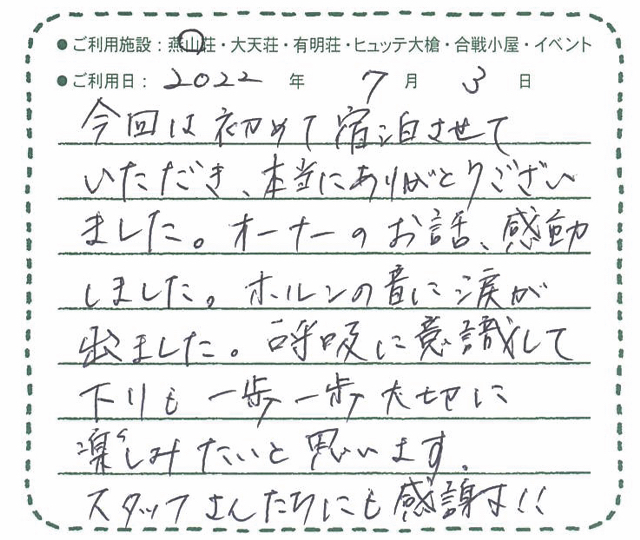 ●ご利用施設：燕山荘・大天荘・有明荘・ヒュッテ大槍・合戦小屋・イベント
●ご利用日：2022年 7月 3日
今回は初めて宿泊させて
いただき、本当にありがとうござい
ました。オーナーのお話、感動
しました。ホルンの音に涙が
出ました。呼吸に意識して
下りも一歩一歩大切に
楽しみたいと思います。
スタッフさんたちにも感謝です!!